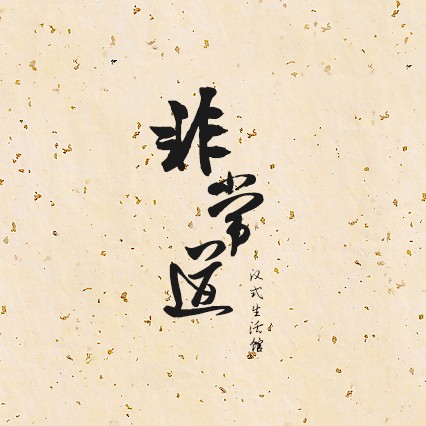 非常道
汉式生活馆